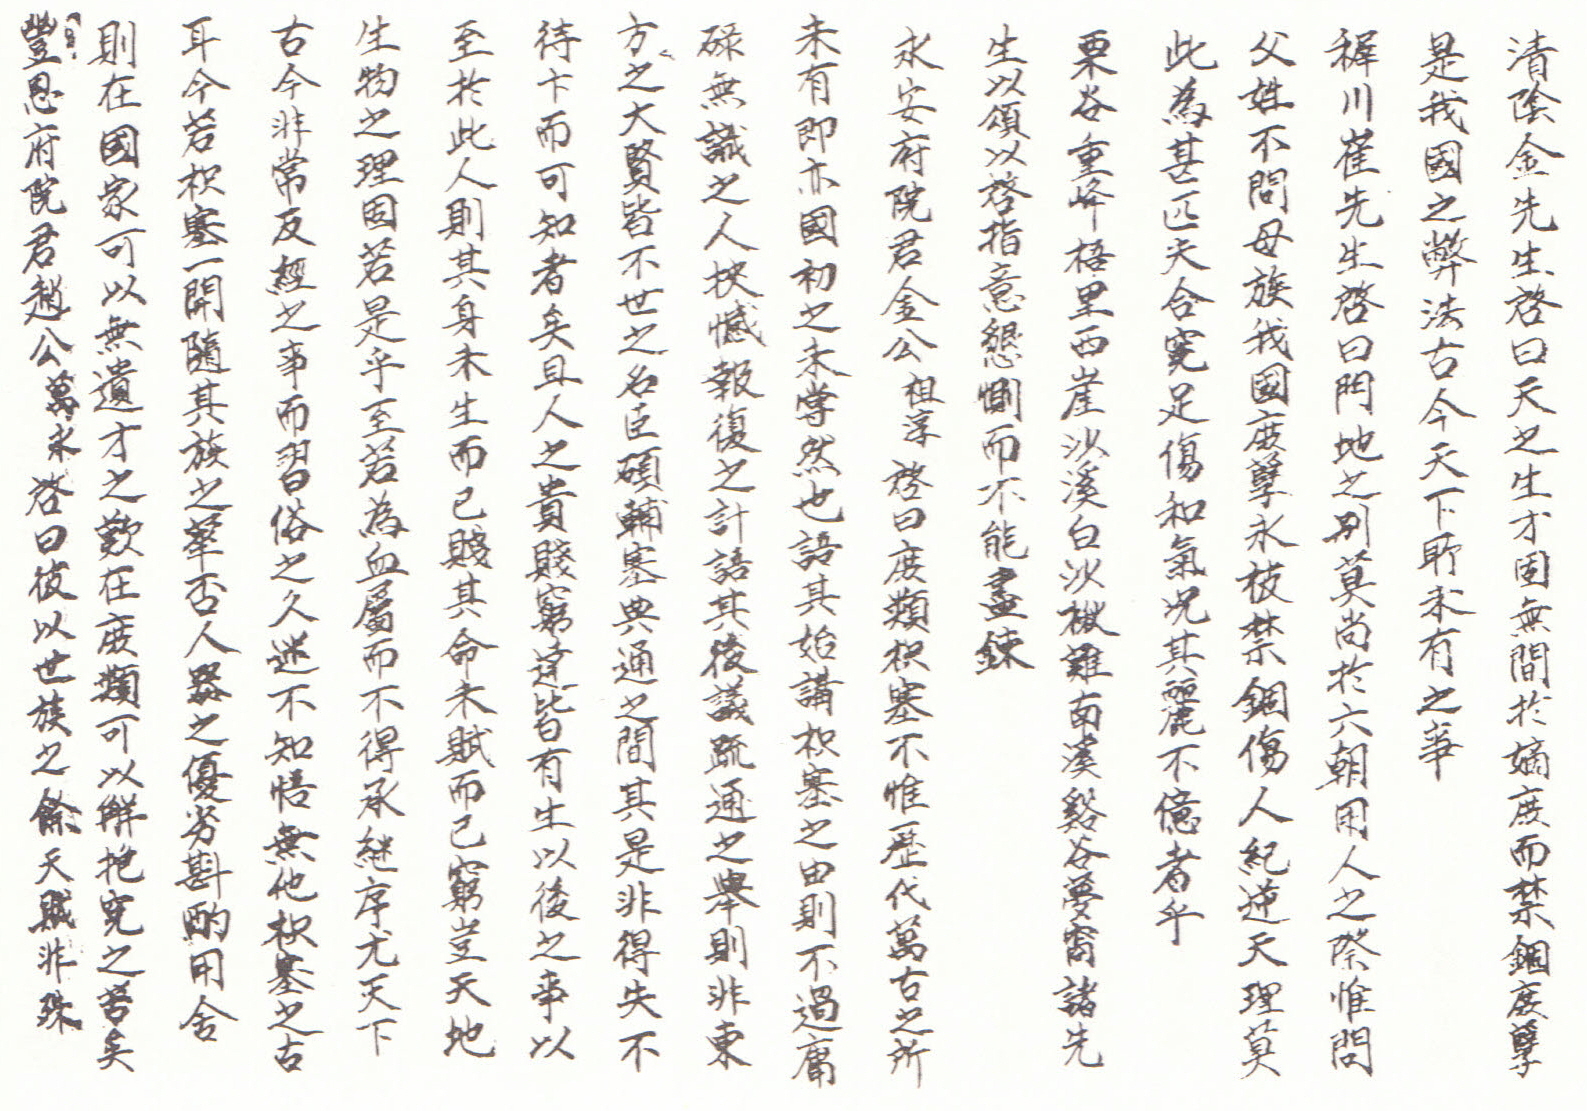 清陰金先生啓曰天之生才固無間於嫡庶而禁錮庶孼
是我國之弊法古今天下所未有之事
穉川崔先生啓曰門地之別莫尚於六朝用人之際惟問
父姓不問母族我國庶孼永枝禁錮傷人紀逆天理莫
此爲甚匹夫含寃足傷和氣况其麗不億者乎
栗谷重峰梧里西崖沙溪白沙樾難南溪谿谷夢窩諸先
生以頌以啓指意懇惻而不能盡錄
永安府院君金公祖淳啓曰庶類枳塞不惟歷代萬古之所
未有即亦國初之未嘗然也語其始講枳塞之由則不過庸
碌無識之人挾憾報復之計語其後議疏通之舉則非東
方之大賢皆不世之名臣碩輔塞與通之間其是非得失不
待卞而可知者矣且人之貴賤窮達皆有生以後之事以
至於此人則其身未生而已賤其命未賦而已窮豈天地
生物之理固若是乎至若爲血屬而不得承継序尤天下
古今非常反經之事而習俗之久迷不知悟無他枳塞之古
耳今若枳塞一開隨其族之華否人器之優劣斟酌用舍
則在國家可以無遺才之歎在庶類可以觧抱寃之苦矣
豐恩府院君趙公萬永啓曰彼以世族之餘天賦非殊